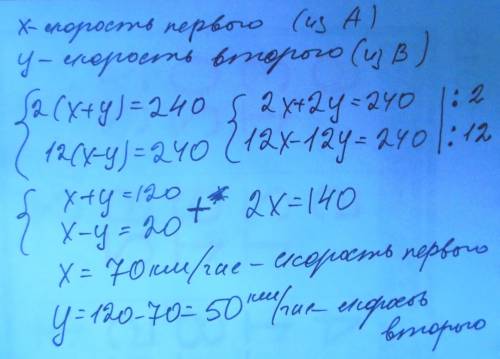 x-скорость первого (из A)
y- скорость второго (из B)
{2(x+y)=240 {2x+2y=240 |:2
12(x-y)=240 12x-12y=240 |:12
{x+y=120 + 2x=140
x-y=20
x = 70 км/час - скорость первого
y=120-70=50 км/час - скорость
второго